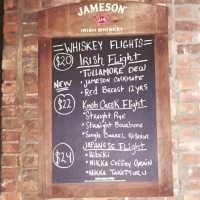 JAMESON
IRISH WHISKEY
WHISKEY FLIGHTS
$20 Irish Flight
• TULLAMORE DEW
• JAMESON CASKMATE
NEW • Red Breast 12 yrs
$22 Knob Creek Flight
• Straight Rye
• Straight Bourbon
• Single Barrel Reserve
JAPANESE Flight
$24 • Hibiki
• NIKKA Coffey Grain
• NIKKA TAKETSURU